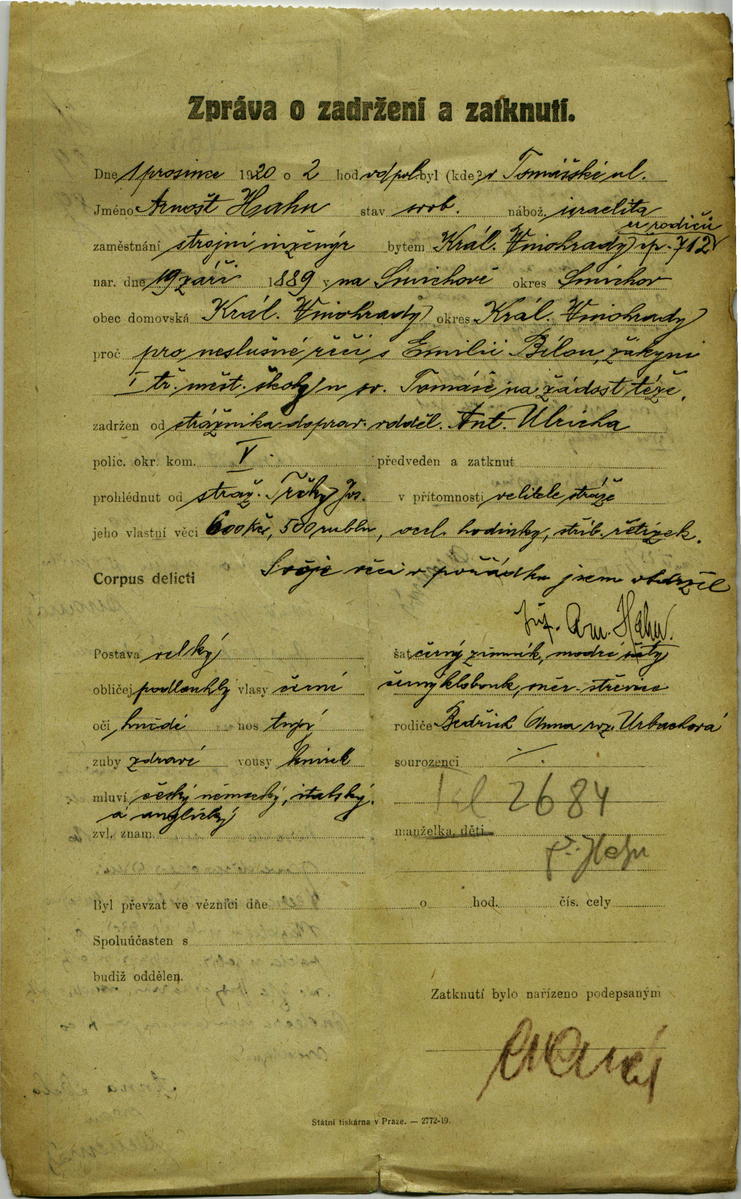 Zpráva o zadržení a zatknutí.
Dne 1 prosince 1920 o 2 hod odpol. byl (kde) v Tomášské ul.
Jméno Arnošt Hahn stav svob. nábož. israelita
u rodičů
zaměstnání strojní inženýr bytem Král. Vinohrady čp. 712
nar. dne 19 září 1889 v na Smíchově okres Smíchov
obec domovská Král. Vinohrady okres Král. Vinohrady
proč pro neslušné řeči s Emilií Bílou, žákyní
I tř. měst. školy u sv. Tomáše na žádost téže.
zadržen od strážníka doprav. odděl. Ant. Ulricha
polic. okr. kom. V. předveden a zatknut
prohlédnut od stráž. Jos. v přítomnosti velitele stráže
jeho vlastní věci 600 Kč, 500 rublů, ocel. hodinky, stříb. řetízek.
Corpus delicti Svoje věci v pořádku jsem obdržel
Hahn.
Postava velký šat černý zimník, modré šaty
obličej podlouhlý vlasy černé černý klobouk, střevíce
oči hnědé nos tupý rodiče Bedřich Anna roz. Urbachová
zuby zdravé vousy knírek sourozenci
mluví česky německy, italsky,
a anglicky Tel 2684
zvl. znam. manželka, děti
Hahn
Byl převzat ve věznici dne o hod. čís. cely
Spoluúčasten s
budiž oddělen.
Zatknutí bylo nařízeno podepsaným
Státní tiskárna v Praze. — 2772-19.